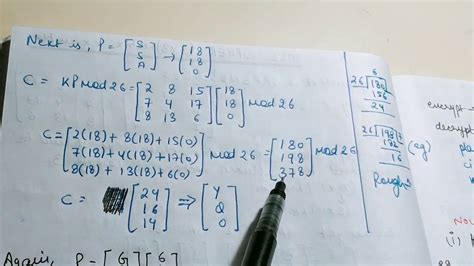 Next is, P = [S S A] → [18 18 0]
C = KP mod 26 = [2 8 15 7 4 17 8 13 6] [18 18 0] mod 26
C = [2(18) + 8(18) + 15(0)
7(18) + 4(18) + 17(0)
8(18) + 13(18) + 6(0)] mod 26 = [180 198 378] mod 26
C = [24 16 14] ⇒ [Y Q O]
Again, P = [G] [6]
6
26 180
156
24
26 198 7
182
16
Rough
encrypt
decryp
(i)